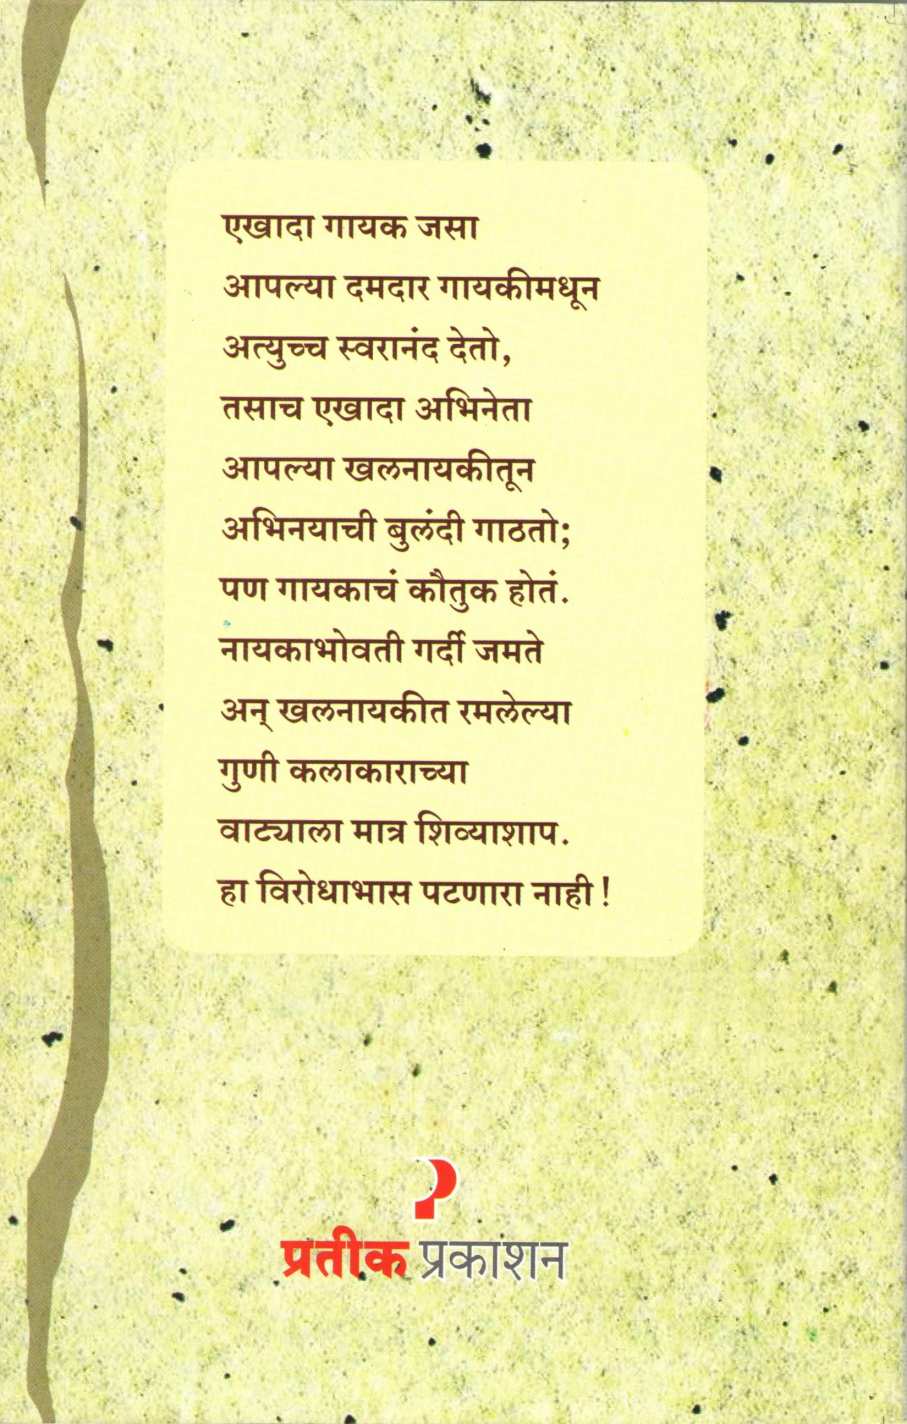 एखादा गायक जसा
आपल्या दमदार गायकीमधून
अत्युच्च स्वरानंद देतो,
तसाच एखादा अभिनेता
आपल्या खलनायकीतून
अभिनयाची बुलंदी गाठतो;
पण गायकाचं कौतुक होतं.
नायकाभोवती गर्दी जमते
अन् खलनायकीत रमलेल्या
गुणी कलाकाराच्या
वाट्याला मात्र शिव्याशाप.
हा विरोधाभास पटणारा नाही !
प्रतीक प्रकाशन